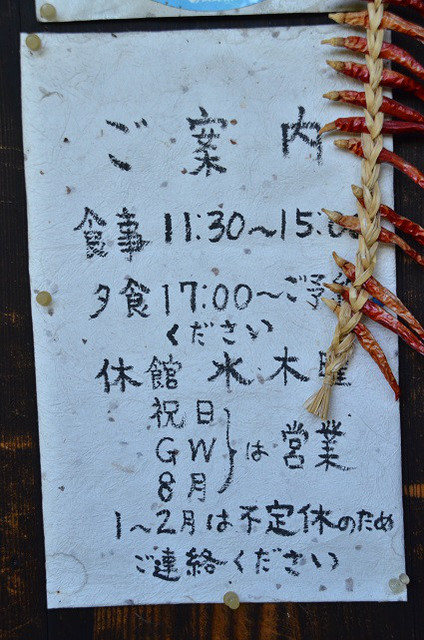 ご案内
食事 11:30～15:0
夕食 17:00～ご予
ください
休館 水 木 曜
祝日
GW
8月
は 営業
1～2月は不定休のため
ご連絡ください